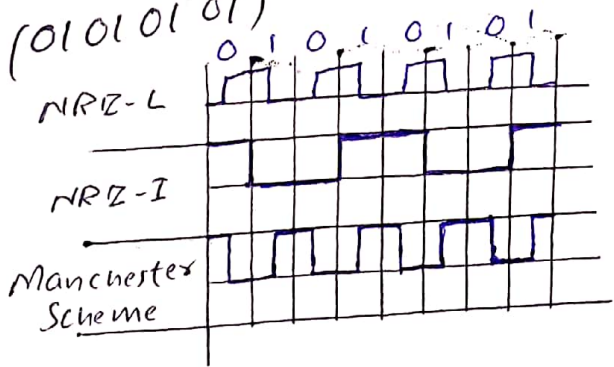 (01010101)
0 1 0 1 0 1 0 1
NRZ-L
NRZ-I
Manchester
Scheme